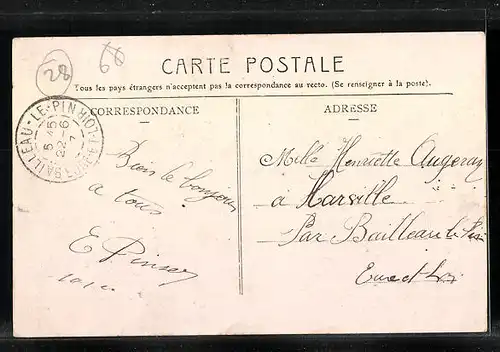 28
68
CARTE POSTALE
Tous les pays étrangers n'acceptent pas la correspondance au recto. (Se renseigner à la poste).
CORRESPONDANCE
ADRESSE
BAILLEAU-LE-PIN
5 45
22-6
Bien le bonjour
a tous
E
Mlle Henriette
à Marville
Par Bailleau le Pin
Eure et Loir